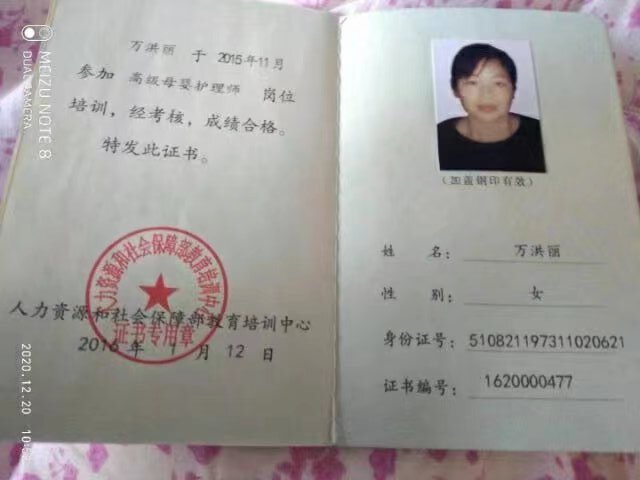 MEIZU NOTE 8
DUAL CAMERA
万洪丽 于 2015年11月
参加 高级母婴护理师 岗位
培训，经考核，成绩合格。
特发此证书。
人力资源和社会保障部教育培训中心
证书专用章
人力资源和社会保障部教育培训中心
2016 年 1 月 12 日
2020.12.20
(加盖钢印有效)
姓 名： 万洪丽
性 别： 女
身份证号： 510821197311020621
证书编号： 1620000477